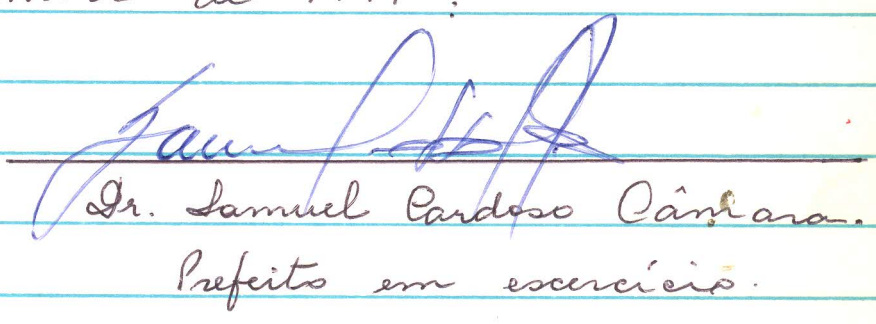 Dr. Samuel Cardoso Câmara.
Prefeito em escercício.